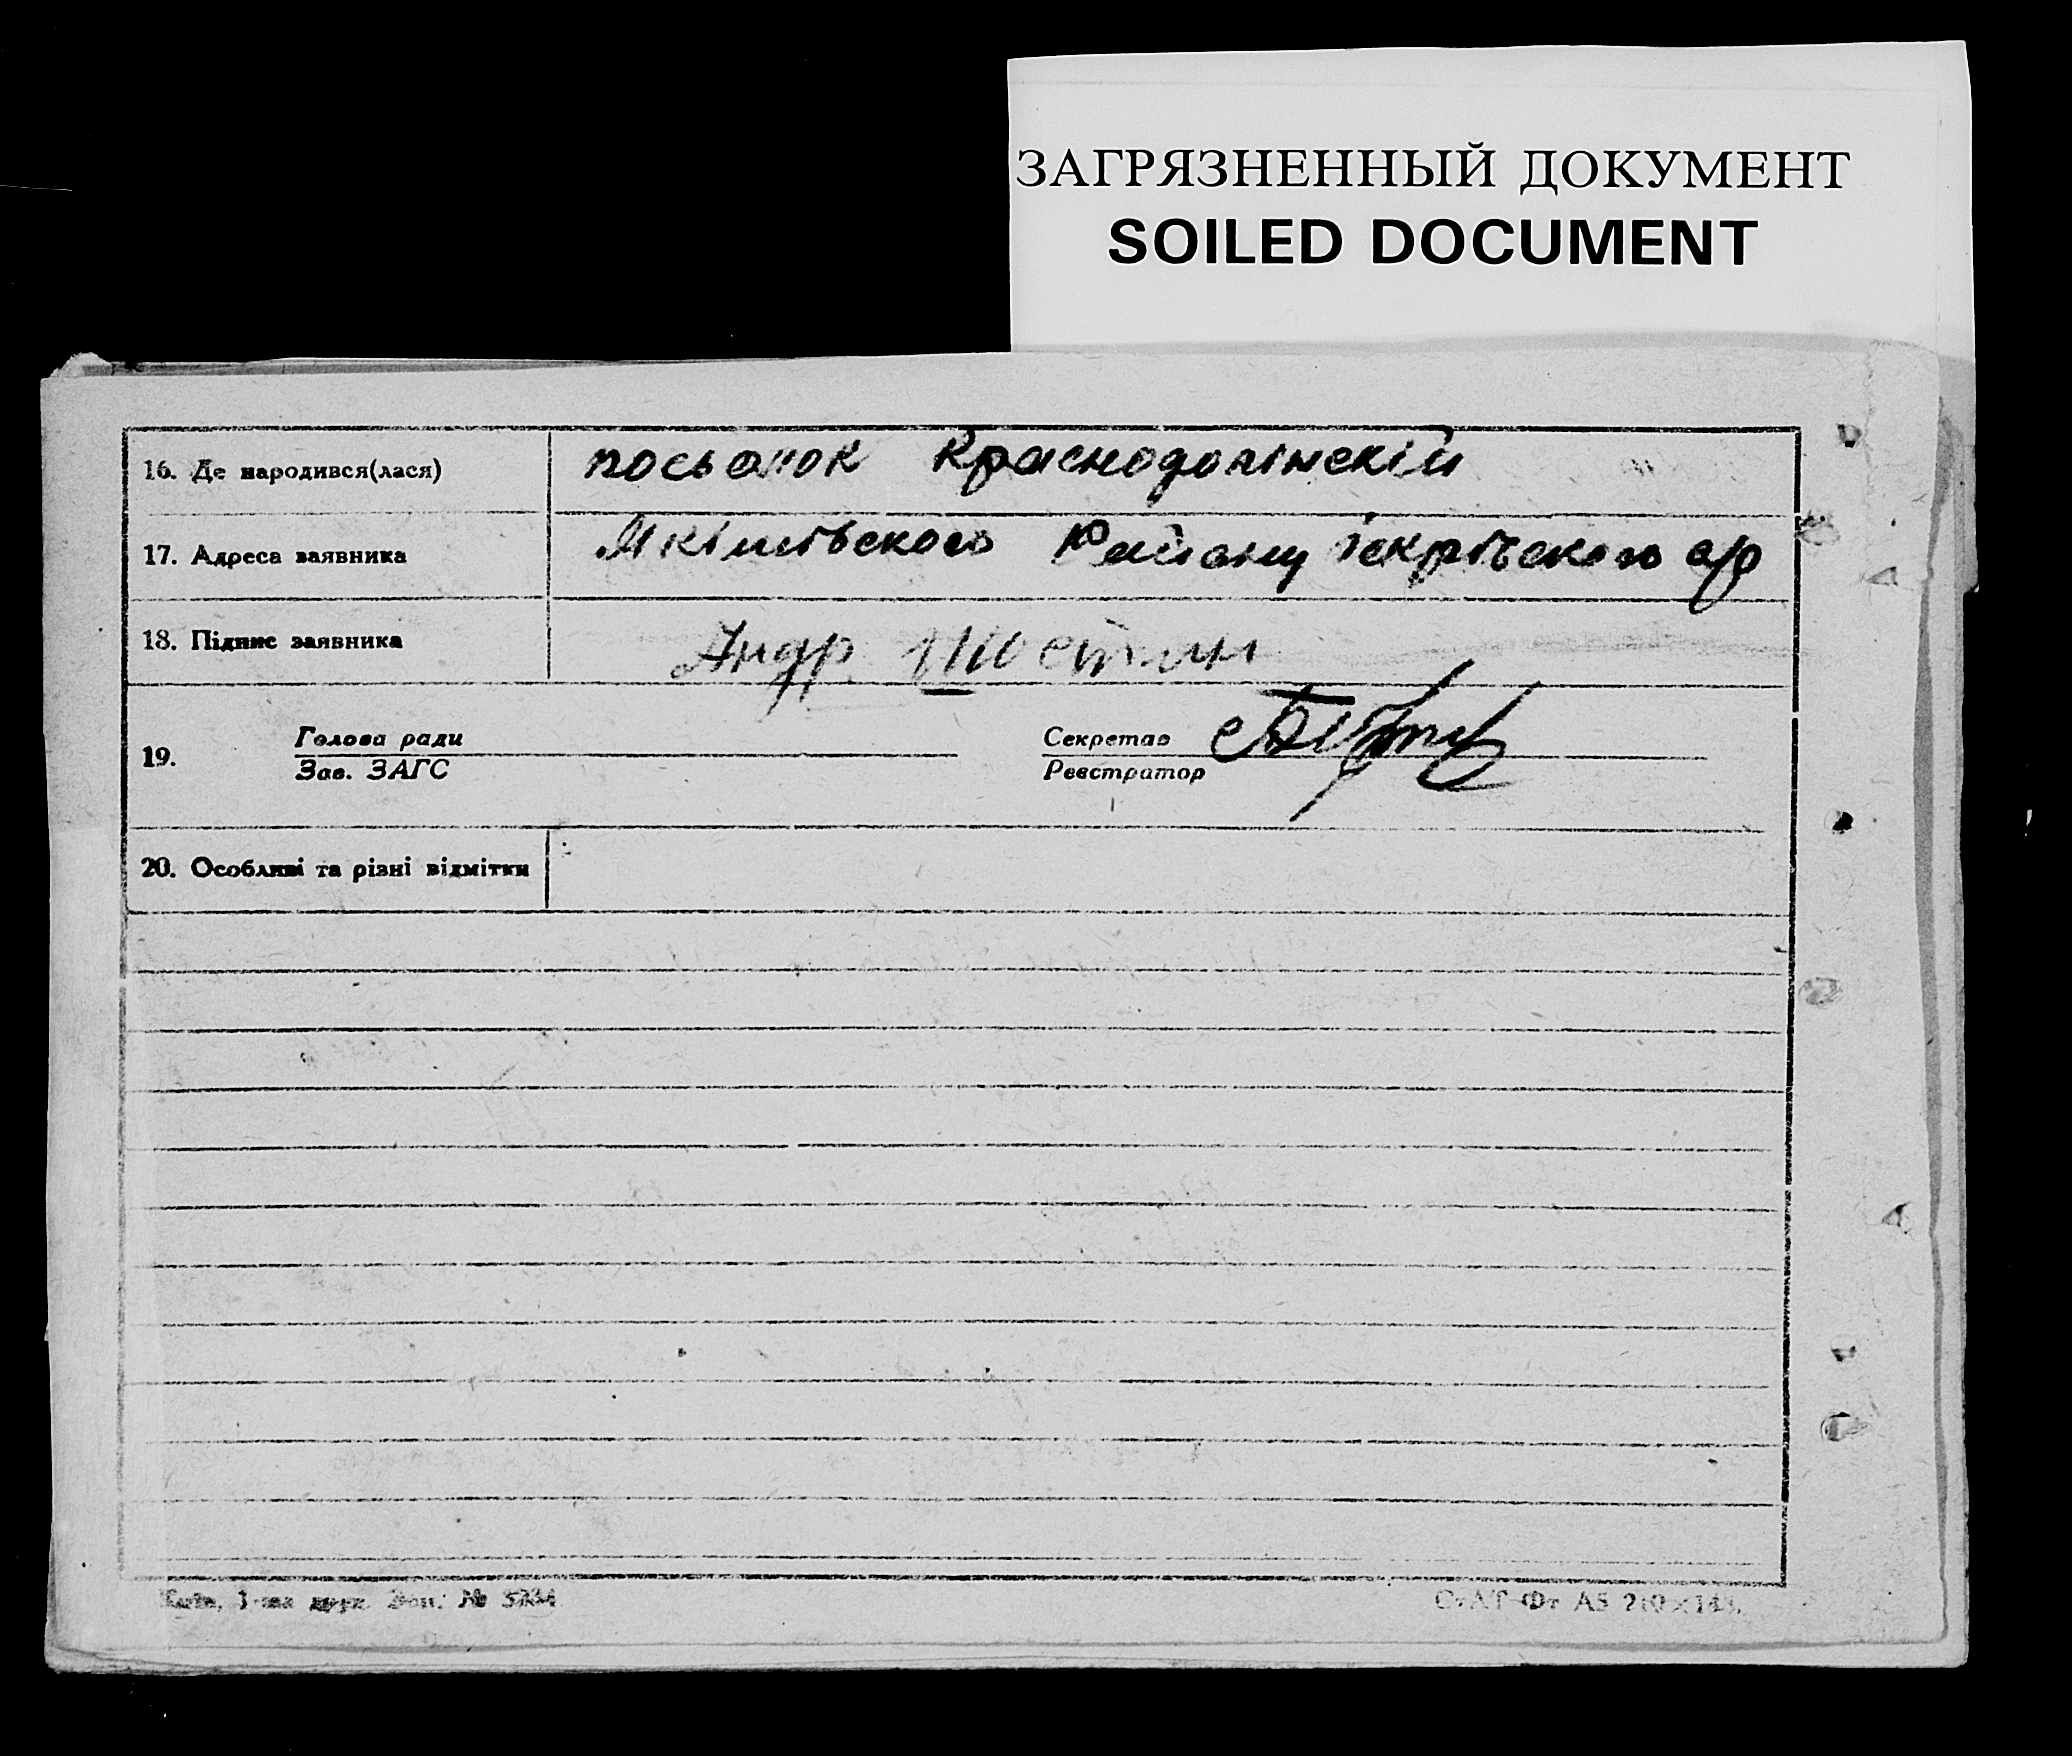 ЗАГРЯЗНЕННЫЙ ДОКУМЕНТ
SOILED DOCUMENT
16. Де народився(лася) посьолок Краснодолінскій
17. Адреса заявника Якімівского Району іскрівского с/р
18. Підпис заявника Андр.
19. Голова ради
Зав. ЗАГС
Секретар
Реєстратор
20. Особливі та різні відмітки
Київ, 1-ша друк. Зам. № 5234
СтАТ Фт А5 210×148.